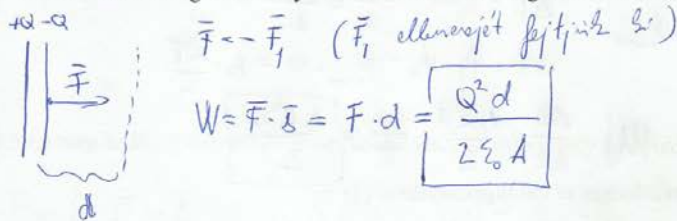 +Q -Q
F̄ = -F̄₁ (F̄₁ ellenerejét fejtjük ki)
F̄
W = F̄·s̄ = F·d = Q²d / 2ε₀A
d